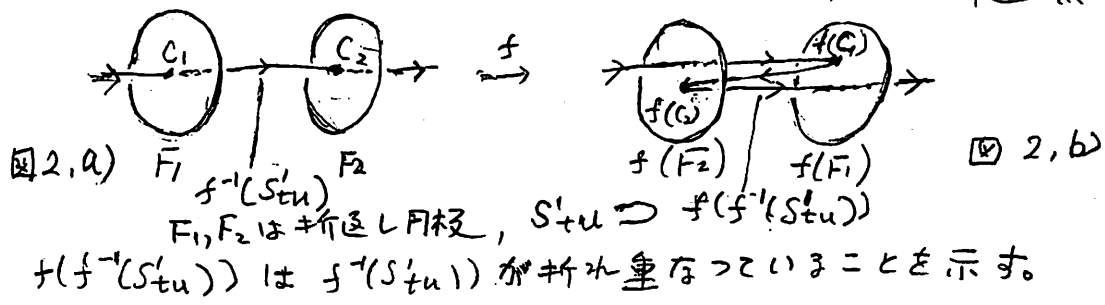 C₁ C₂ f f(C₁)
f(C₂)
図2,a) F₁ F₂ f(F₂) f(F₁) 図 2,b)
f⁻¹(S'tu)
F₁,F₂は折返し円板, S'tu ⊃ f(f⁻¹(S'tu))
f(f⁻¹(S'tu))は f⁻¹(S'tu)が折れ重なっていることを示す。